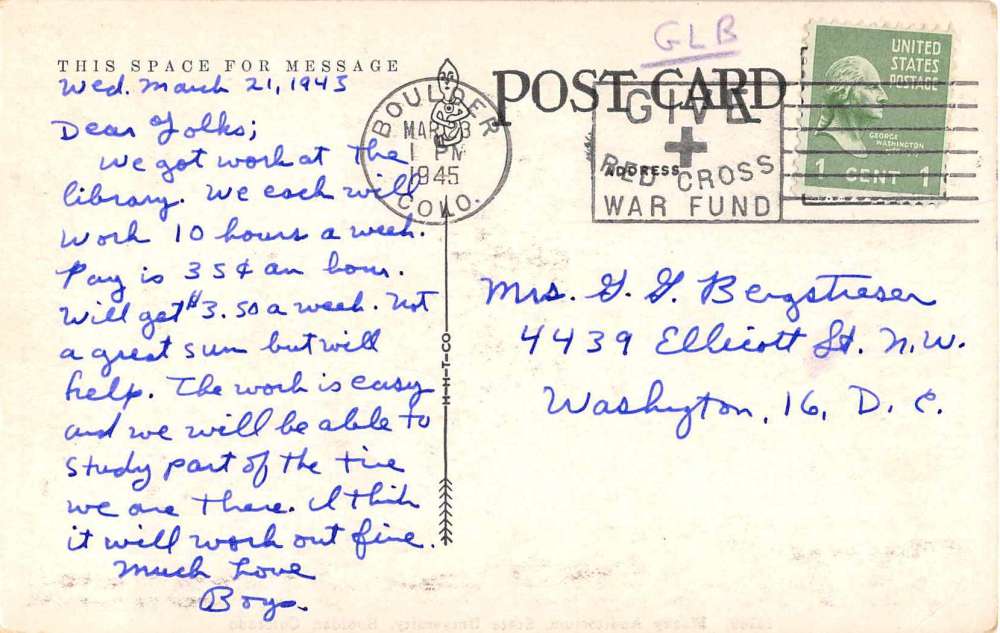 GLB
THIS SPACE FOR MESSAGE
POST CARD
ADDRESS
UNITED
STATES
POSTAGE
GEORGE
WASHINGTON
1 CENT 1
BOULDER
MAR 23
1 PM
1945
COLO.
GIVE
RED CROSS
WAR FUND
Wed. March 21, 1945
Dear Folks;
We got work at the
library. We each will
work 10 hours a week.
Pay is 35¢ an hour.
Will get $3.50 a week. Not
a great sum but will
help. The work is easy
and we will be able to
study part of the time
we are there. I think
it will work out fine.
Much Love
Boys.
Mrs. G. G. Bergstresser
4439 Ellicott St. N.W.
Washington, 16, D. C.
H-H-T-CO
Macky Auditorium, State University, Boulder, Colorado